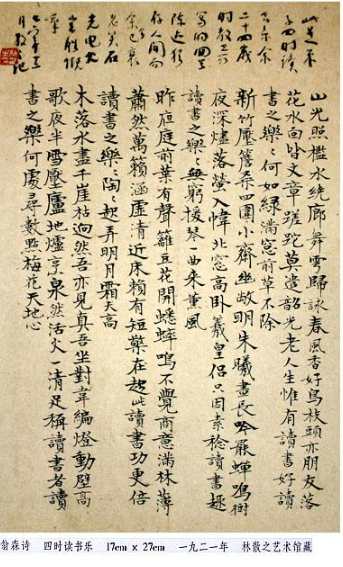 山光照檻水繞廊舞雩歸詠春風香好鳥枝頭亦朋友落
花水面皆文章蹉跎莫遣韶光老人生惟有讀書好讀
書之樂〻何如綠滿窗前草不除
新竹壓簷桑四圍小齋幽敞明朱曦晝長吟罷蟬鳴樹
夜深燼落螢入幃北窗高臥羲皇侶只因素稔讀書趣
讀書之樂〻無窮援琴一曲來薰風
昨夜庭前葉有聲籬豆花開蟋蟀鳴不覺商意滿林薄
蕭然萬籟涵虛清近床賴有短檠在趁此讀書功更倍
讀書之樂〻陶〻起弄明月霜天高
木落水盡千崖枯迥然吾亦見真吾坐對韋編燈動壁高
歌夜半雪壓廬地爐烹泉然活火一清足稱讀書者讀
書之樂何處尋數點梅花天地心
四时读
余
二十四歲
时
陈迹犹
存人间
余已衰
老矣石
火电光
翁森诗 四时读书乐 17cm x 27cm 一九二一年 林散之艺术馆藏